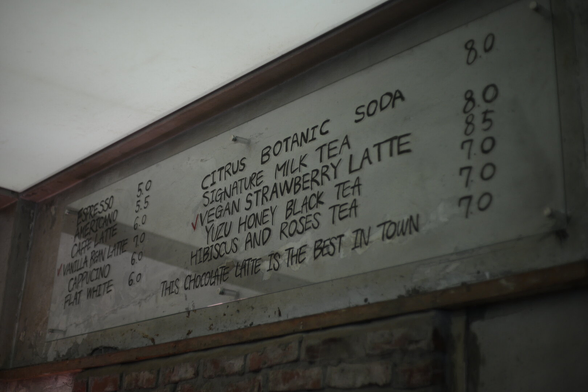 ESPRESSO 5.0
AMERICANO 5.5
CAFFE LATTE 6.0
VANILLA BEAN LATTE 7.0
CAPPUCINO 6.0
FLAT WHITE 6.0
CITRUS BOTANIC SODA 8.0
SIGNATURE MILK TEA 8.0
VEGAN STRAWBERRY LATTE 8.5
YUZU HONEY BLACK TEA 7.0
HIBISCUS AND ROSES TEA 7.0
THIS CHOCOLATE LATTE IS THE BEST IN TOWN 7.0